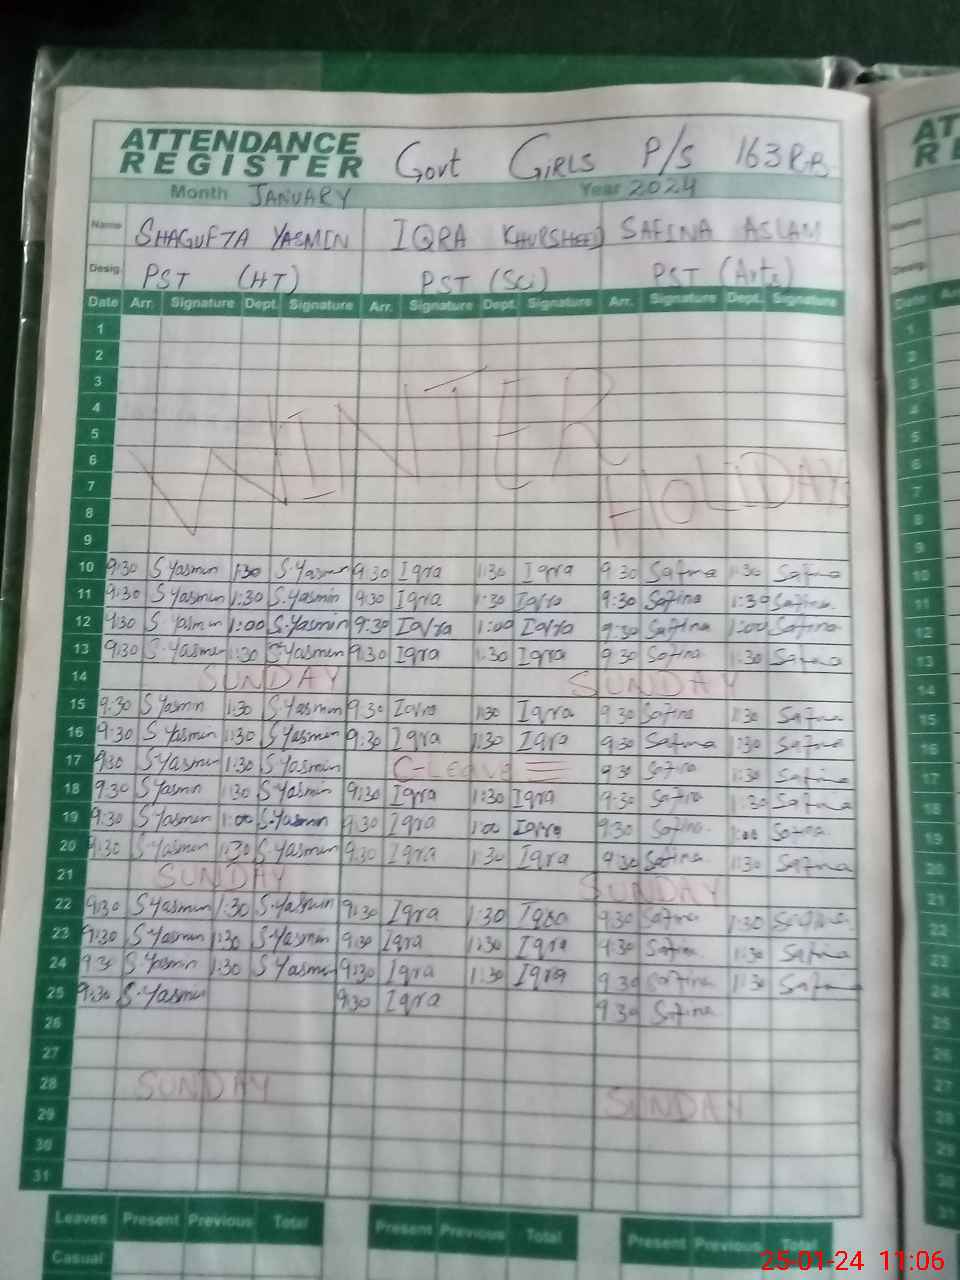 ATTENDANCE REGISTER Govt GIRLS P/S 163 R.B
Month JANUARY Year 2024
Name SHAGUFTA YASMIN IQRA KHURSHEED SAFINA ASLAM
Desig. PST (HT) PST (Sci) PST (Arts)
Date Arr. Signature Dept. Signature Arr. Signature Dept. Signature Arr. Signature Dept. Signature
1
2
3
4
5
6
7
8
9
WINTER HOLIDAY
10 9:30 S.Yasmin 1:30 S.Yasmin 9:30 Iqra 1:30 Iqra 9:30 Safina 1:30 Safina
11 9:30 S.Yasmin 1:30 S.Yasmin 9:30 Iqra 1:30 Iqra 9:30 Safina 1:30 Safina
12 9:30 S.Yasmin 1:00 S.Yasmin 9:30 Iqra 1:00 Iqra 9:30 Safina 1:00 Safina
13 9:30 S.Yasmin 1:30 S.Yasmin 9:30 Iqra 1:30 Iqra 9:30 Safina 1:30 Safina
14 SUNDAY SUNDAY
15 9:30 S.Yasmin 1:30 S.Yasmin 9:30 Iqra 1:30 Iqra 9:30 Safina 1:30 Safina
16 9:30 S.Yasmin 1:30 S.Yasmin 9:30 Iqra 1:30 Iqra 9:30 Safina 1:30 Safina
17 9:30 S.Yasmin 1:30 S.Yasmin C-Leave 9:30 Safina 1:30 Safina
18 9:30 S.Yasmin 1:30 S.Yasmin 9:30 Iqra 1:30 Iqra 9:30 Safina 1:30 Safina
19 9:30 S.Yasmin 1:00 S.Yasmin 9:30 Iqra 1:00 Iqra 9:30 Safina 1:00 Safina
20 9:30 S.Yasmin 1:30 S.Yasmin 9:30 Iqra 1:30 Iqra 9:30 Safina 1:30 Safina
21 SUNDAY SUNDAY
22 9:30 S.Yasmin 1:30 S.Yasmin 9:30 Iqra 1:30 Iqra 9:30 Safina 1:30 Safina
23 9:30 S.Yasmin 1:30 S.Yasmin 9:30 Iqra 1:30 Iqra 9:30 Safina 1:30 Safina
24 9:30 S.Yasmin 1:30 S.Yasmin 9:30 Iqra 1:30 Iqra 9:30 Safina 1:30 Safina
25 9:30 S.Yasmin 9:30 Iqra 9:30 Safina
26
27
28 SUNDAY SUNDAY
29
30
31
Leaves Present Previous Total Present Previous Total Present Previous Total
Casual
25-01-24 11:06